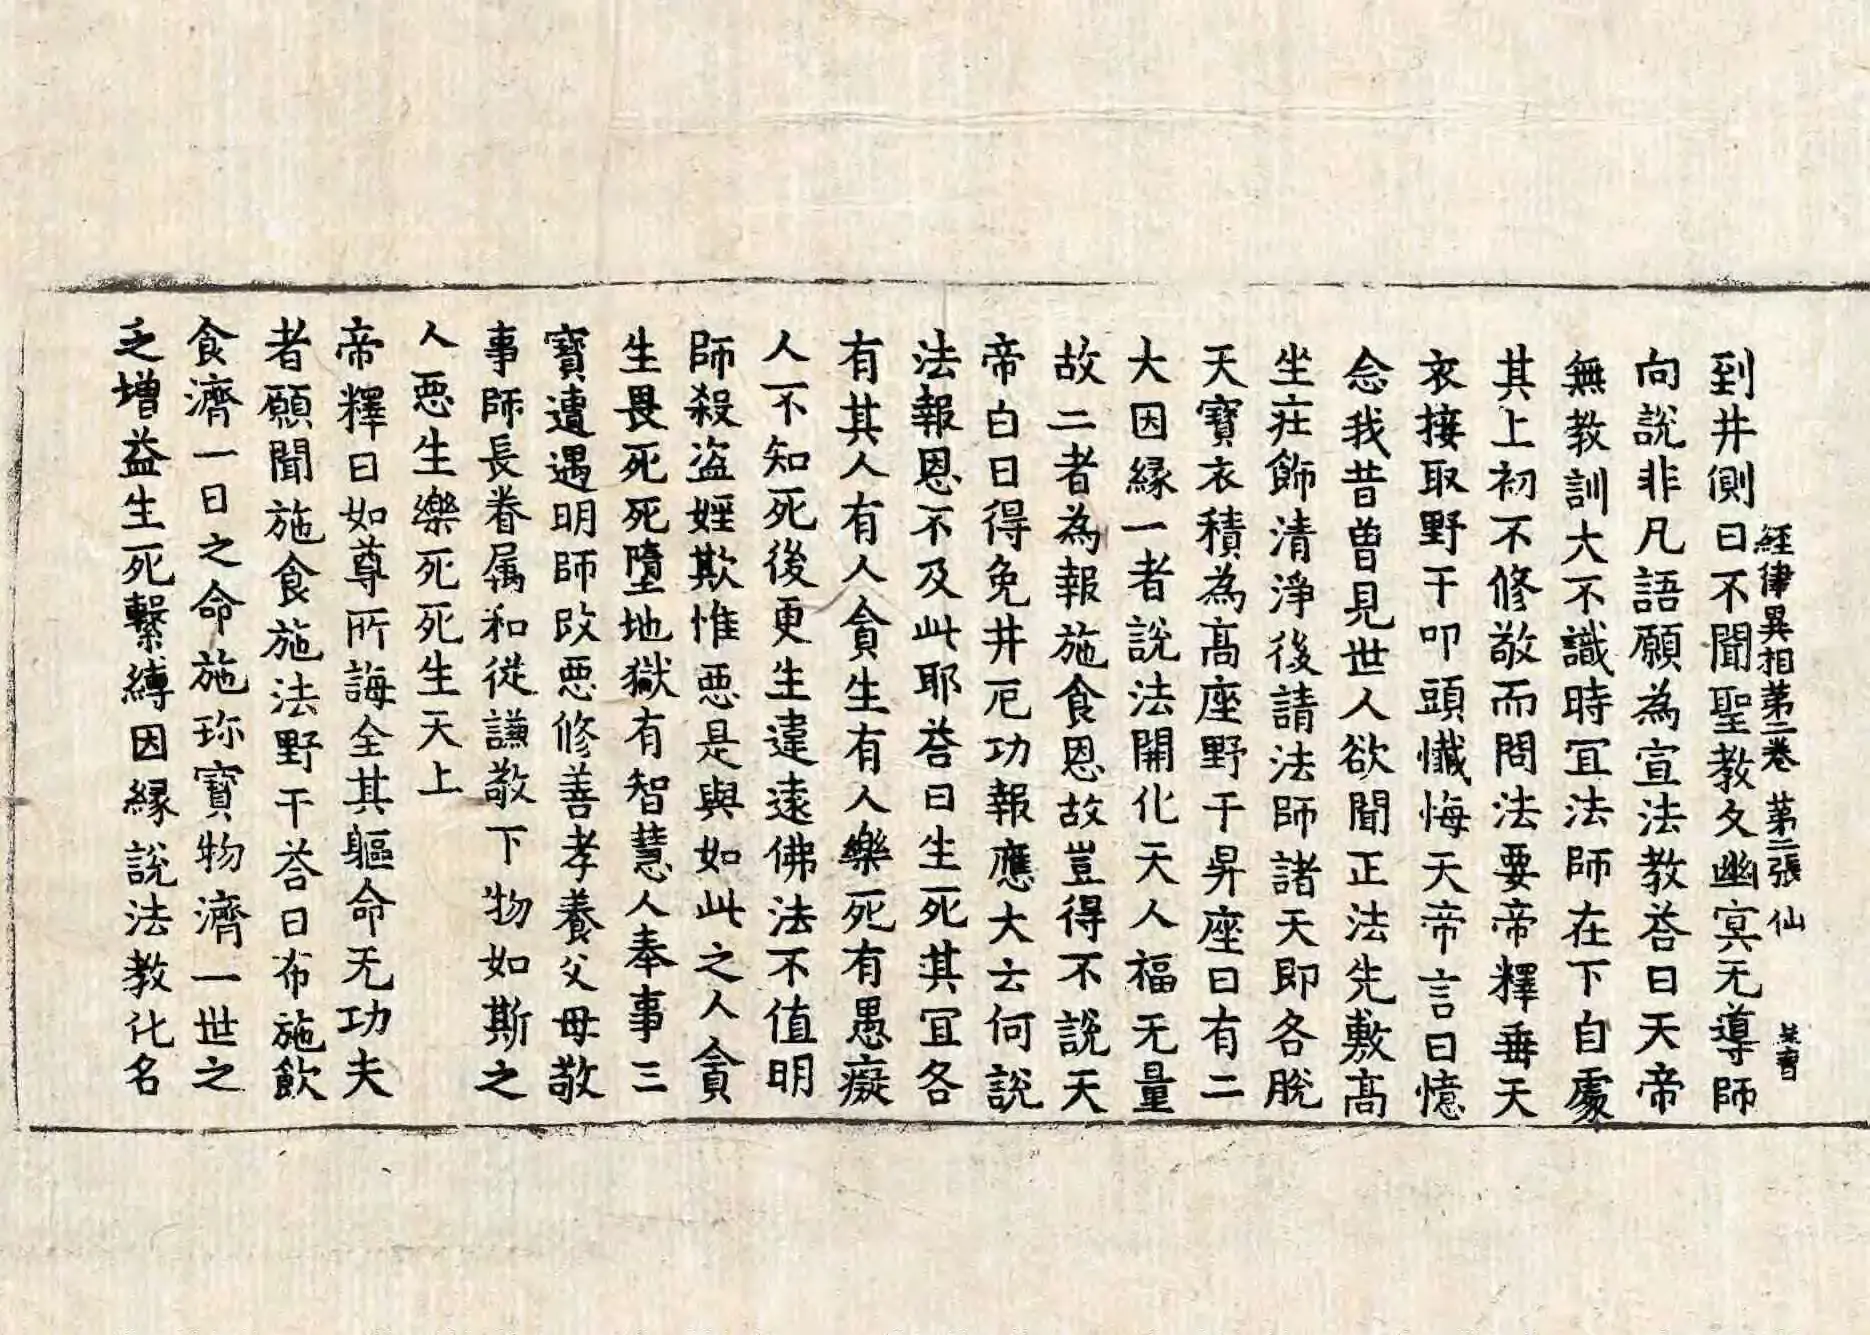 到井側曰不聞聖教久幽冥无導師
經律異相苐二卷 苐二張 仙
向說非凡語願為宣法教荅曰天帝
無教訓大不識時冝法師在下自處
其上初不修敬而問法要帝釋垂天
衣接取野干叩頭懺悔天帝言曰憶
念我昔曾見世人欲聞正法先敷髙
坐庄飾清淨後請法師諸天即各脫
天寶衣積為髙座野干昇座曰有二
大因緣一者說法開化天人福无量
故二者為報施食恩故豈得不說天
帝白曰得免井厄功報應大云何說
法報恩不及此耶荅曰生死其冝各
有其人有人貪生有人樂死有愚癡
人不知死後更生違遠佛法不值明
師殺盜婬欺惟惡是與如此之人貪
生畏死死墮地獄有智慧人奉事三
寶遭遇明師改惡修善孝養父母敬
事師長眷属和從謙敬下物如斯之
人惡生樂死死生天上
帝釋曰如尊所誨全其軀命无功夫
者願聞施食施法野干荅曰布施飲
食濟一日之命施珎寶物濟一世之
乏增益生死繫縛因緣說法教化名